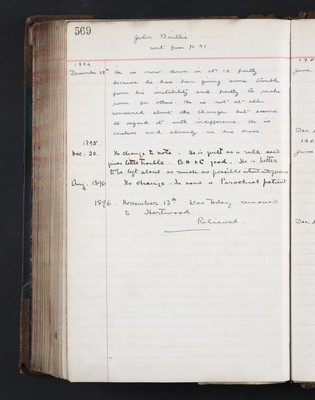 569
John Baillie
cont. from p. 91
1894
December 28th He is now down in No 13 partly
because he has been giving some trouble
from his irritability and partly to make
room for others. He is not at all
concerned about the change but seems
to regard it with indifference. He is
careless and slovenly in his dress.
1895.
Dec. 20. No change to note. He is quiet as a rule and
gives little trouble. B.H. & C good. He is better
to be left alone as much as possible
Aug. 1896 No change. Is now a Parochial patient
1896. November 13th Was today removed
to Hartwood.
Relieved
June
Dec.
June
Dec.